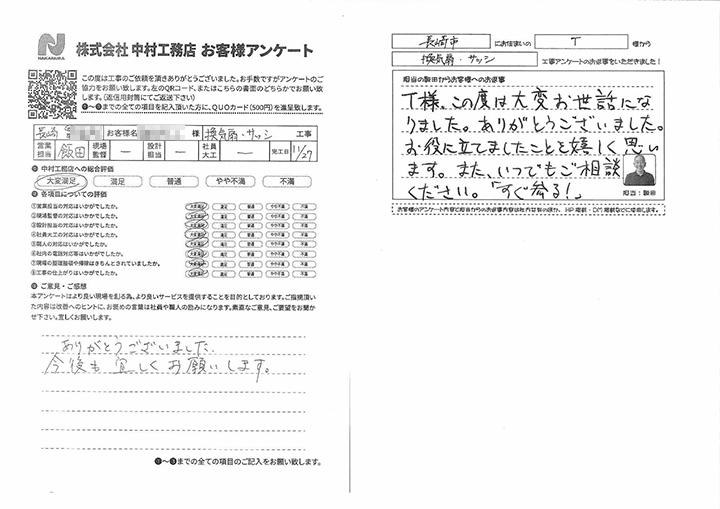 NAKAMURA
株式会社 中村工務店 お客様アンケート
この度は工事のご依頼を頂きありがとうございました。お手数ですがアンケートのご
協力をお願い致します。左のQRコード、またはこちらの書面のどちらかでお願い致
します。(返信用封筒にてご返送下さい)
❶～❸までの全ての項目を記入頂いた方に、QUOカード(500円)を進呈致します。
長崎 お客様名 様 換気扇・サッシ 工事
営業担当 飯田 現場監督 ー 設計担当 ー 社員大工 ー 完工日 11/27
❶ 中村工務店への総合評価
大変満足 満足 普通 やや不満 不満
❷ 各項目についての評価
①営業担当の対応はいかがでしたか。 大変満足 満足 普通 やや不満 不満
②現場監督の対応はいかがでしたか。 大変満足 満足 普通 やや不満 不満
③設計担当の対応はいかがでしたか。 大変満足 満足 普通 やや不満 不満
④社員大工の対応はいかがでしたか。 大変満足 満足 普通 やや不満 不満
⑤職人の対応はいかがでしたか。 大変満足 満足 普通 やや不満 不満
⑥社内の電話対応等はいかがでしたか。 大変満足 満足 普通 やや不満 不満
⑦現場の整理整頓や掃除はきちんとされていましたか。 大変満足 満足 普通 やや不満 不満
⑧工事の仕上がりはいかがでしたか。 大変満足 満足 普通 やや不満 不満
❸ ご意見・ご感想
本アンケートはより良い現場を創る為、より良いサービスを提供することを目的としております。ご指摘頂い
た内容は改善へのヒントに、お褒めの言葉は社員や職人の励みになります。素直なご意見、ご要望をお聞か
せ下さい。宜しくお願いします。
ありがとうございました。
今後も宜しくお願いします。
❶～❸までの全ての項目のご記入をお願い致します。
長崎市 にお住まいの T 様から
換気扇・サッシ 工事アンケートのお返事をいただきました!
担当の飯田からお客様へのお返事
T様。この度は大変お世話にな
りました。ありがとうございました。
お役に立てましたことを嬉しく思い
ます。また、いつでもご相談
ください。「すぐ参る!」
担当:飯田